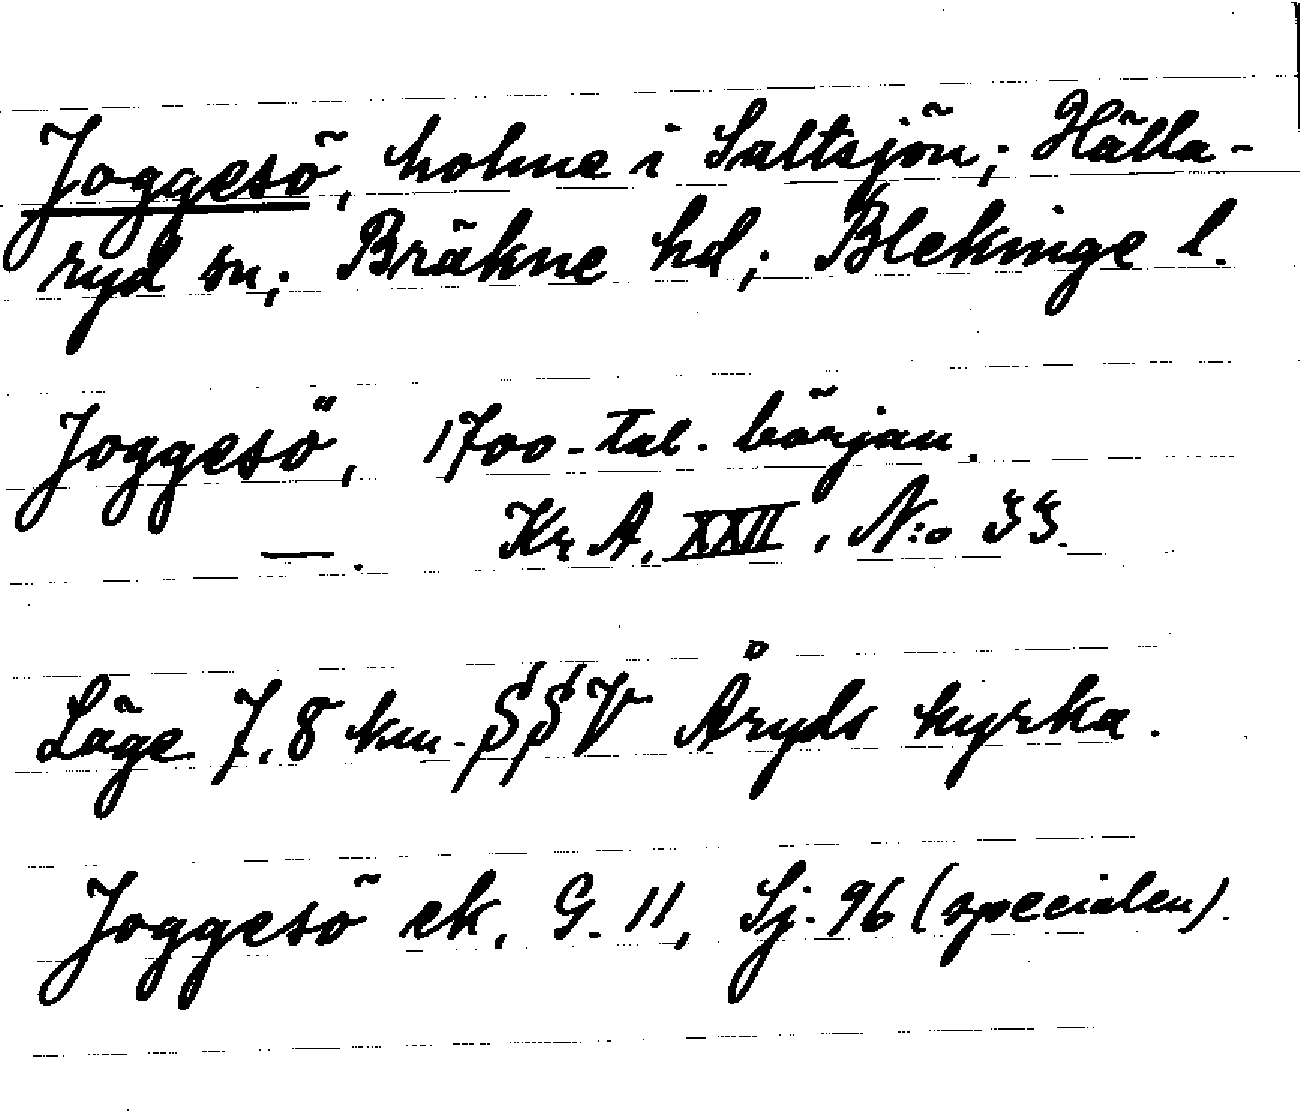 Joggesö, holme i Saltsjön; Hälla-
ryd sn; Bräkne hd; Blekinge l.
Joggesö, 1700-tal. början.
—. Kr A, XXII, N:o 33.
Läge 7,8 km SSV Åryds kyrka.
Joggesö ek. G. 11, Sj. 96 (specialen).